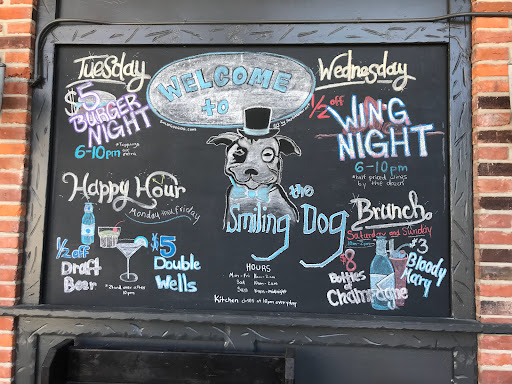 Tuesday
$5
BURGER
NIGHT
6-10pm
*Toppings
are extra
WELCOME
to
Wednesday
1/2 off
WING
NIGHT
6-10pm
*half priced wings
by the dozen
Happy Hour
Monday thru Friday
1/2 off
Draft
Beer
$5
Double
Wells
*21 and over after
10pm
the
Smiling Dog
HOURS
Mon-Fri
Sat
Sun
Kitchen closes at 10pm everyday
Brunch
Saturday and Sunday
10am-2pm
$8
Bottles of
Champagne
$3
Bloody
Mary